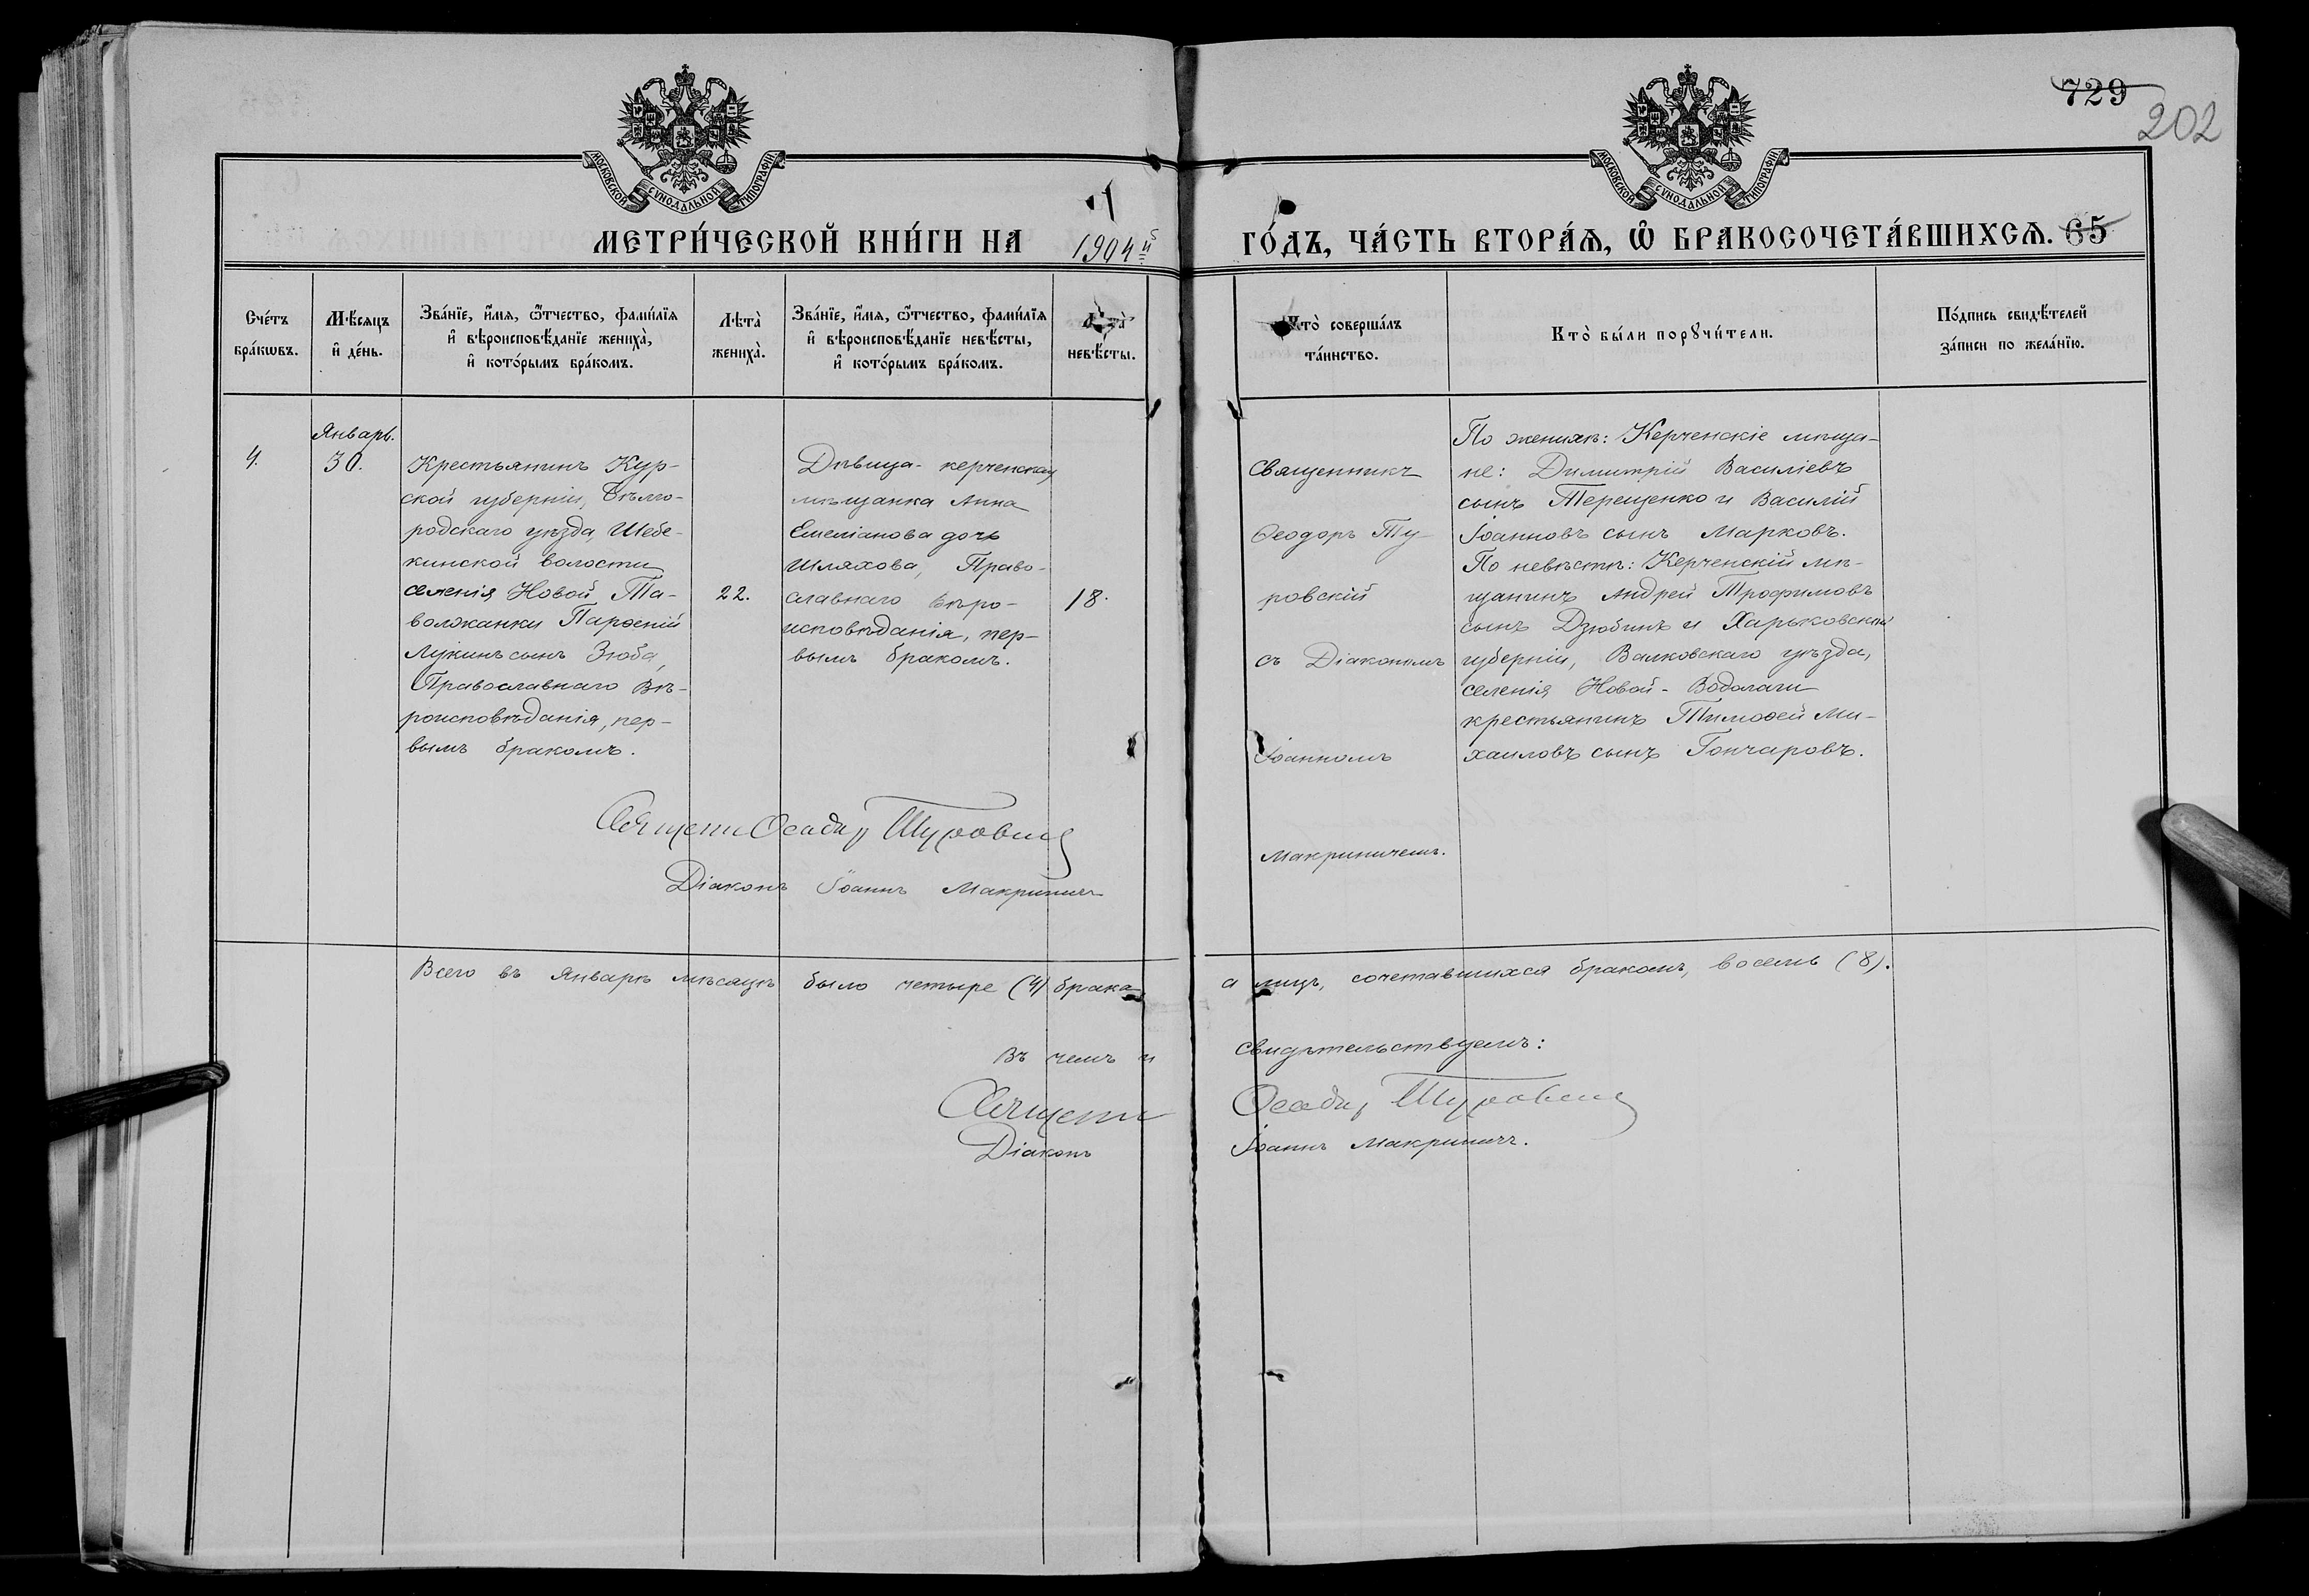 729
202
МОСКОВСКОЙ СУНОДАЛЬНОЙ ТИПОГРАФІИ
МОСКОВСКОЙ СУНОДАЛЬНОЙ ТИПОГРАФІИ
МЕТРИ́ЧЕСКОЙ КНИ́ГИ НА 1904й
ГО́ДЪ, ЧА́СТЬ ВТОРА́Ѧ, Ѽ БРАКОСОЧЕТА́ВШИХСѦ. 65
Сче́тъ
бра́кѡвъ.
Мѣ́сяцъ
и҆ де́нь.
Зва́нїе, и҆́мя, ѻ҆́тчество, фами́лїя
и҆ вѣроисповѣ́данїе жениха̀,
и҆ кото́рымъ бра́комъ.
Лѣта̀
жениха̀.
Зва́нїе, и҆́мя, ѻ҆́тчество, фами́лїя
и҆ вѣроисповѣ́данїе невѣ́сты,
и҆ кото́рымъ бра́комъ.
Лѣта̀
невѣ́сты.
Кто̀ соверша́лъ
та́инство.
Кто̀ бы́ли порꙋчи́тели.
По́дпись свидѣ́телей
за́писи по жела́нїю.
4.
Январь.
30.
Крестьянинъ Кур-
ской губерніи, Бѣлго-
родскаго уѣзда, Шебе-
кинской волости
селенія Новой Та-
воложанки Парѳеній
Лукинъ сынъ Зюба,
Православнаго Вѣ-
роисповѣданія, пер-
вымъ бракомъ.
22.
Дѣвица - керченская
мѣщанка Анна
Емеліанова дочь
Шляхова, Право-
славнаго Вѣро-
исповѣданія, пер-
вымъ бракомъ.
18.
Священникъ
Ѳеодоръ Ту-
ровскій
съ Діакономъ
Іоанномъ
Макриничемъ.
По женихѣ: Керченскіе мѣща-
не: Димитрій Василіевъ
сынъ Терещенко и Василій
Іоанновъ сынъ Марковъ.
По невѣстѣ: Керченскій мѣ-
щанинъ Андрей Трофимовъ
сынъ Дзюбинъ и Харьковской
губерніи, Валковскаго уѣзда,
селенія Новой - Водолаги
крестьянинъ Тимоѳей Ми-
хаиловъ сынъ Гончаровъ.
Священн Ѳеодор Туровскій
Діаконъ Іоаннъ Макриничъ
Всего въ Январѣ мѣсяцѣ было четыре (4) брака, а лицъ, сочетавшихся бракомъ, восемь (8).
Въ чемъ и свидѣтельствуемъ:
Священн Ѳеодор Туровскій
Діаконъ Іоаннъ Макриничъ.